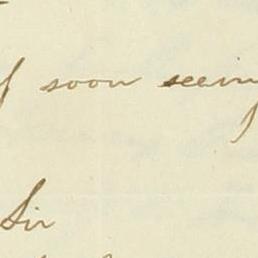 soon seeing
Sir